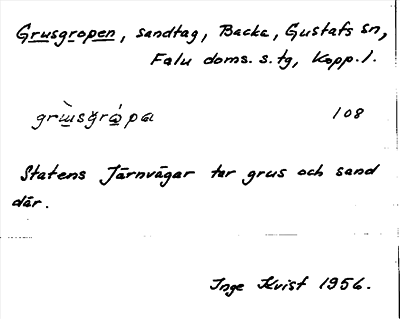 Grusgropen, sandtag, Backa, Gustafs sn,
Falu doms. s. tg, Kopp. l.
108
Statens Järnvägar tar grus och sand
där.
Inge Kvist 1956.